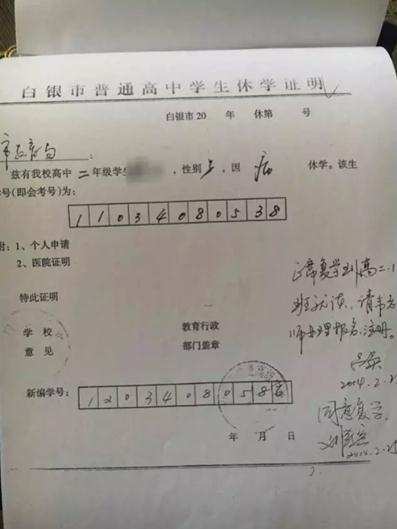 白银市普通高中学生休学证明
白银市20 年 休第 号
市教育局：
兹有我校高中二年级学生 ，性别 ，因病 休学。该生
学号(即会考号)为：
11034080538
附：1、个人申请
2、医院证明
特此证明
学校 教育行政
意见 部门盖章
新编学号：
1203408058
年 月 日
正常复学到高二.1
班就读，请韦老
师办理报名、注册。
2014.2.2
同意复学
2014.2.25